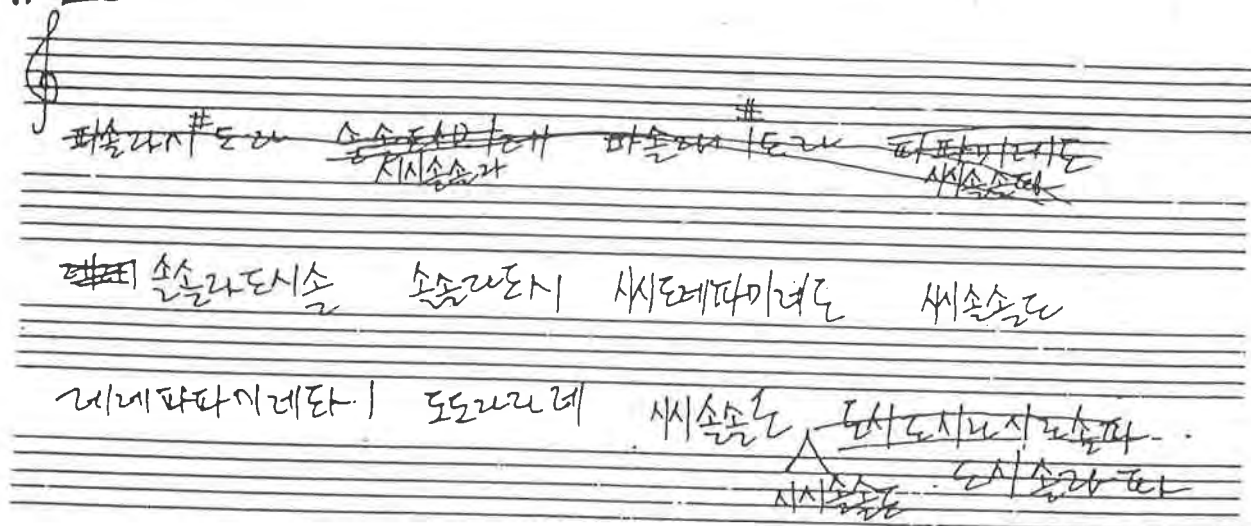 파솔라시#도라 솔솔도솔미레 파솔라시#도라 파파미레도
시시솔솔라 시시솔솔도
솔솔라도시솔 솔솔라도시 시시도레파미레도 시시솔솔도
레레파파미레도시 도도라라레 시시솔솔도 도시도시라시도솔파..
시시솔솔도 도시솔라파